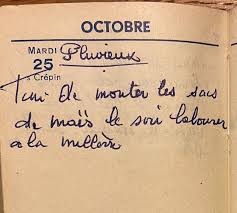 OCTOBRE
MARDI Pluvieux
25
s Crépin
Fini de monter les sacs
de maïs le soir labourer
a la